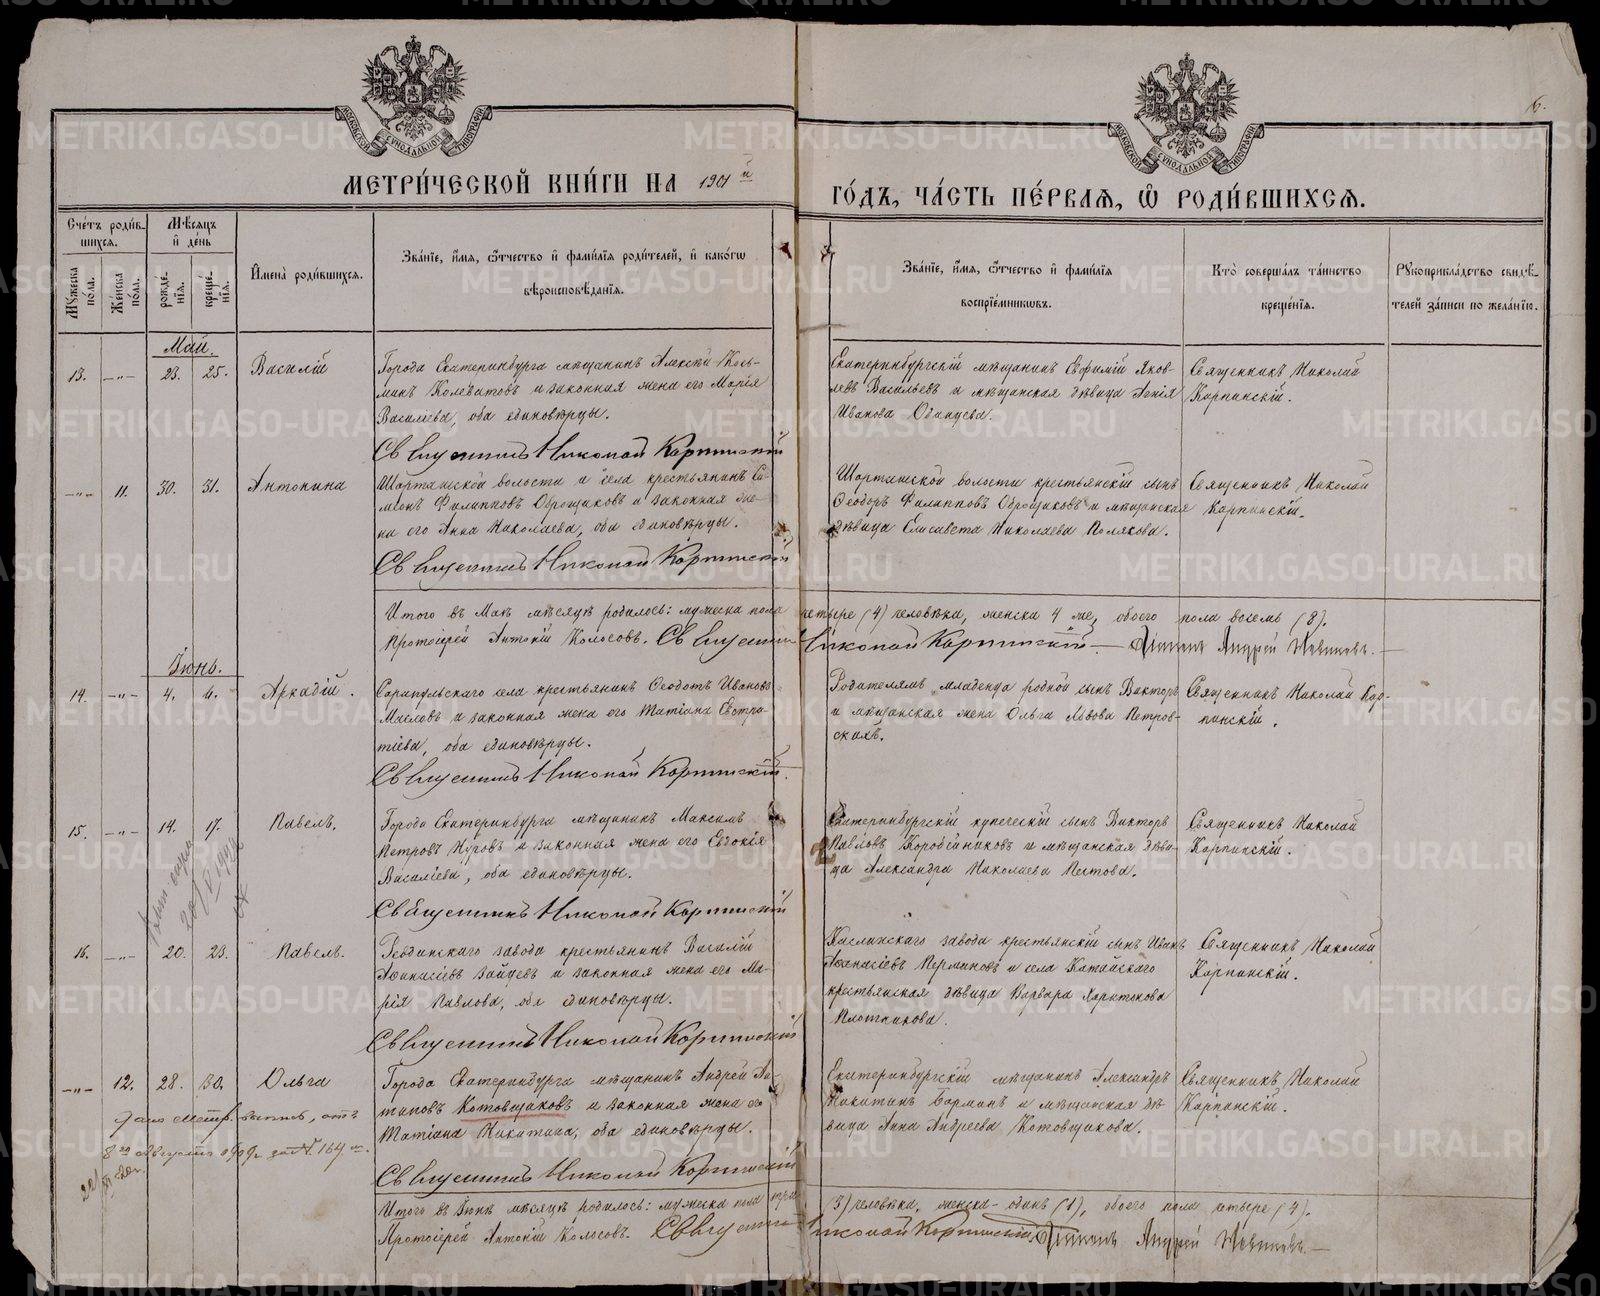 6.
МОСКОВСКОЙ СУНОДАЛЬНОЙ ТИПОГРАФІИ
МОСКОВСКОЙ СУНОДАЛЬНОЙ ТИПОГРАФІИ
МЕТРИ́ЧЕСКОЙ КНИ́ГИ НА 1901й ГО́ДЪ, ЧА́СТЬ ПЕ́РВАѦ, Ѡ РОДИ́ВШИХСѦ.
Сче́тъ роди́в-
шихсѧ.
Мѣ́сѧцъ
и де́нь
Му́жеска по́ла.
Же́нска по́ла.
рожде́-
нїѧ.
креще́-
нїѧ.
Имена̀ роди́вшихсѧ.
Зва́нїе, и́мѧ, ѻ́тчество и фами́лїѧ роди́телей, и како́гѡ
вѣроисповѣ́данїѧ.
Зва́нїе, и́мѧ, ѻ́тчество и фами́лїѧ
воспрїе́мникѡвъ.
Кто̀ соверша́лъ та́инство
креще́нїѧ.
Рꙋкоприкла́дство свидѣ́-
телей за́писи по жела́нїю.
Май.
13. —„— 23. 25. Василій
Города Екатеринбурга мѣщанинъ Алексѣй Козь-
минъ Колеватовъ и законная жена его Марія
Василіева, оба единовѣрцы.
Священникъ Николай Карпинскій
Екатеринбургскій мѣщанинъ Евфимій Яков-
левъ Васильевъ и мѣщанская дѣвица
Иванова Одинцева.
Священникъ Николай
Карпинскій.
—„— 11. 30. 31. Антонина
Шарташской волости и села крестьянинъ Си-
меонъ Филипповъ Оброщиковъ и законная же-
на его Анна Николаева, оба единовѣрцы.
Священникъ Николай Карпинскій
Шарташской волости крестьянскій сынъ
Ѳеодоръ Филипповъ Оброщиковъ и мѣщанская
дѣвица Елисавета Николаева Полякова.
Священникъ Николай
Карпинскій.
Итого въ Маѣ мѣсяцѣ родилось: мужеска пола четыре (4) человѣка, женска 4 же, обоего пола восемь (8).
Протоіерей Антоній Колосовъ. Священникъ Николай Карпинскій — Діаконъ Андрей Новиковъ. —
Іюнь.
14. —„— 4. 6. Аркадій.
Сарапульскаго села крестьянинъ Ѳеодотъ Ивановъ
Масловъ и законная жена его Татіана Евстра-
тіева, оба единовѣрцы.
Священникъ Николай Карпинскій.
Родителямъ младенца родной сынъ Викторъ
и мѣщанская жена Ольга Львова Петров-
скихъ.
Священникъ Николай Кар-
пинскій.
15. —„— 14. 17. Павелъ.
Города Екатеринбурга мѣщанинъ Максимъ
Петровъ Нуровъ и законная жена его Евдокія
Василіева, оба единовѣрцы.
Священникъ Николай Карпинскій
Екатеринбургскій купеческій сынъ Викторъ
Павловъ Коробейниковъ и мѣщанская дѣви-
ца Александра Николаева Пштова.
Священникъ Николай
Карпинскій.
16. —„— 20. 23. Павелъ.
завода крестьянинъ Василій
Аѳанасіевъ Зайцевъ и законная жена его Ма-
рія Павлова, оба единовѣрцы.
Священникъ Николай Карпинскій
Каслинскаго завода крестьянскій сынъ Иванъ
Аѳанасіевъ Перминовъ и села Катайскаго
крестьянская дѣвица Варвара Харитонова
Плотникова.
Священникъ Николай
Карпинскій.
—„— 12. 28. 30. Ольга
Города Екатеринбурга мѣщанинъ Андрей Ан-
типовъ Котовщиковъ и законная жена его
Татіана Никитина, оба единовѣрцы.
Священникъ Николай Карпинскій
Екатеринбургскій мѣщанинъ Александръ
Никитинъ Борманъ и мѣщанская дѣ-
вица Анна Андреева Котовщикова.
Священникъ Николай
Карпинскій.
метр. выпись, отъ
8го августа 1909г. за № 164
Итого въ Іюнѣ мѣсяцѣ родилось: мужеска пола три (3) человѣка, женска - одинъ (1), обоего пола четыре (4).
Протоіерей Антоній Колосовъ. Священникъ Николай Карпинскій. Діаконъ Андрей Новиковъ. —
METRIKI.GASO-URAL.RU